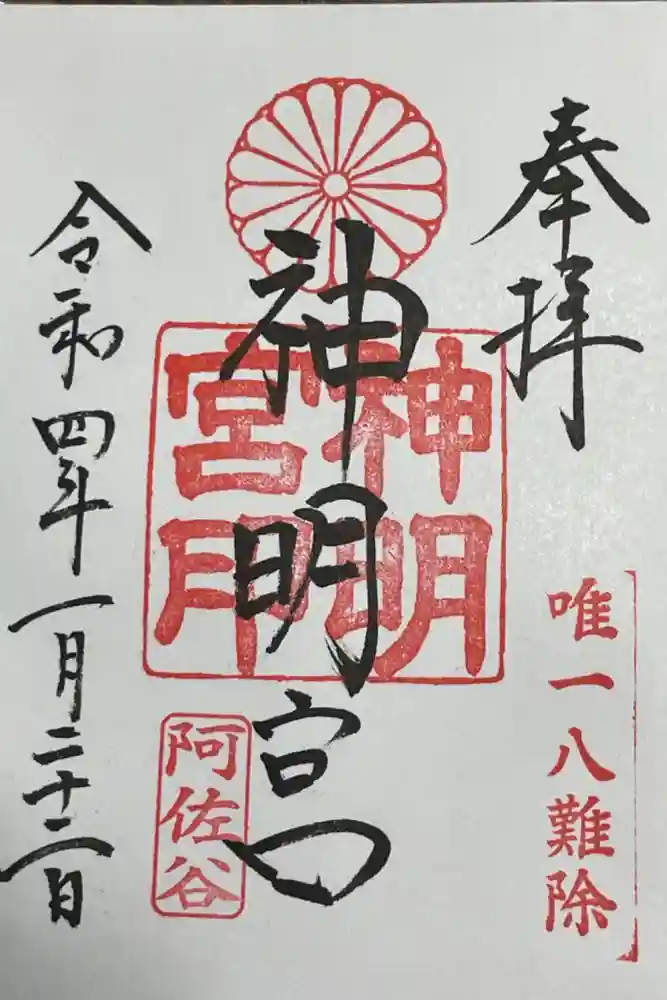 奉拝
唯一八難除
神明宮
神明
宮印
阿佐谷
令和四年一月二十二日